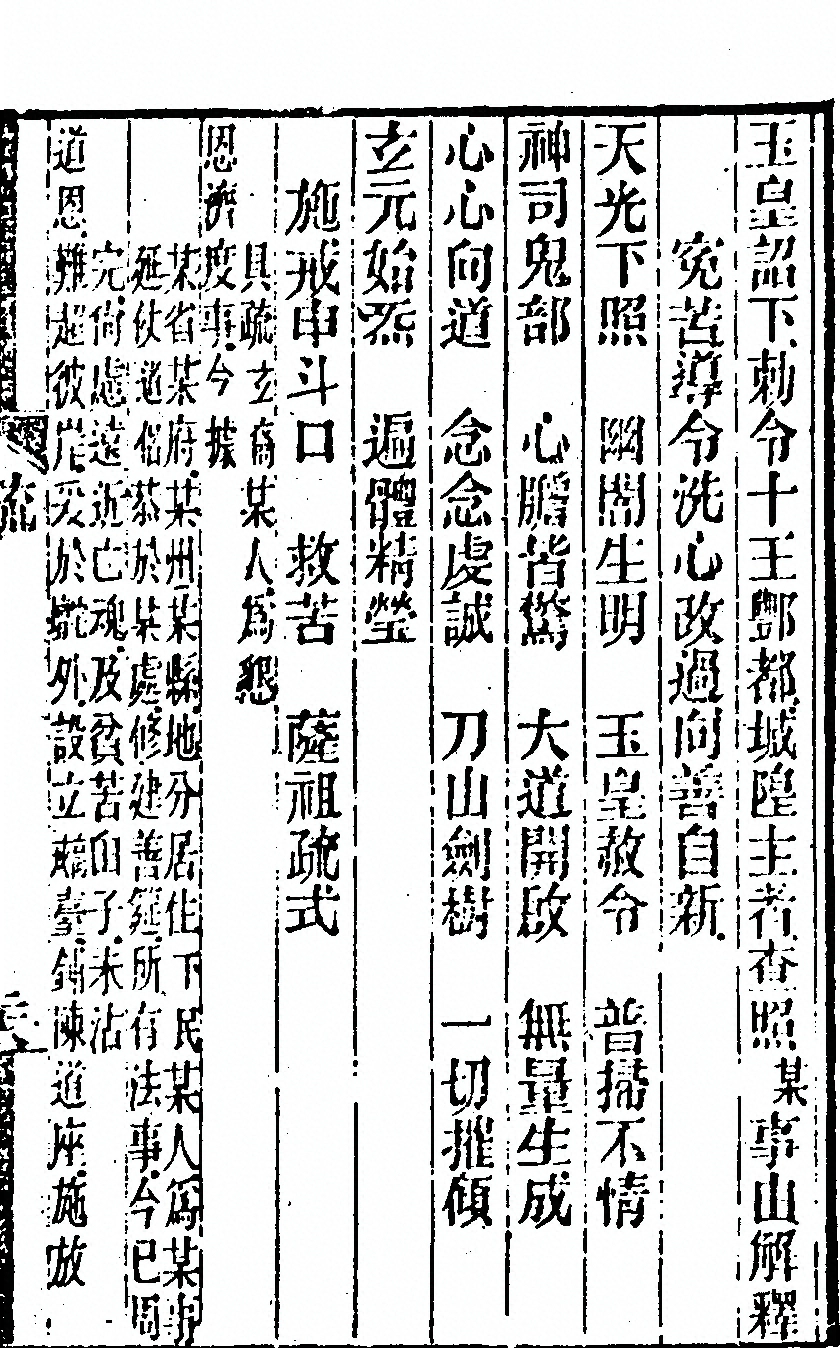 玉皇詔下勅令十王酆都城隍主者查照某事山解釋
冤苦導令洗心改過向善自新
天光下照　幽闇生明　玉皇赦令　普掃不情
神司鬼部　心膽皆驚　大道開啟　無量生成
心心向道　念念虔誠　刀山劍樹　一切摧傾
玄元始炁　遍體精瑩
施戒申斗口　救苦　薩祖疏式
具疏玄裔某人為懇
恩濟度事今據
某省某府某州某縣地分居住下民某人為某事
延仗道侶恭於某處修建善筵所有法事今已周
完倘慮遠近亡魂及貧苦由子未沾
道恩難超彼岸爰於壇外設立蘸臺鋪陳道座施放